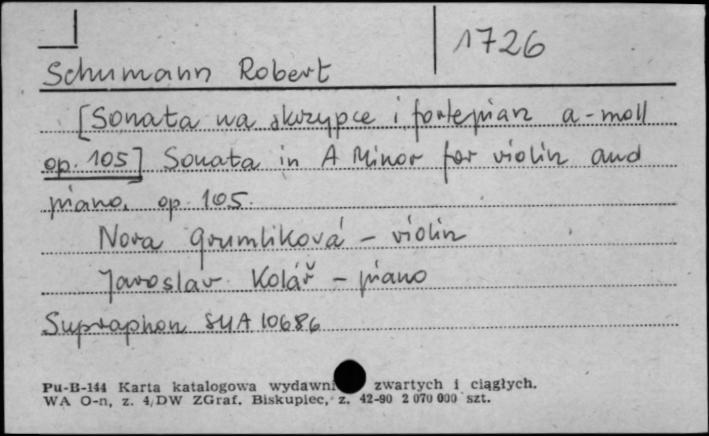 1726
Schumann Robert
[Sonata na skrzypce i fortepian a-moll
op. 105] Sonata in A Minor for violin and
piano, op. 105.
Nora Grumliková - violin
Jaroslav Kolář - piano
Supraphon SUA 10686
Pu-B-144 Karta katalogowa wydawni zwartych i ciągłych.
WA O-n, z. 4/DW ZGraf. Biskupiec, z. 42-90 2 070 000 szt.